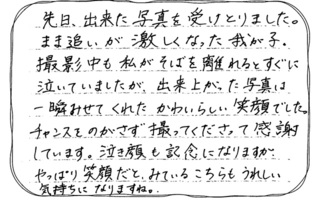 先日、出来た写真を受けとりました。
まま追いが激しくなった我が子。
撮影中も私がそばを離れるとすぐに
泣いていましたが、出来上がった写真は
一瞬みせてくれたかわいらしい笑顔でした。
チャンスをのがさず撮ってくださって感謝
しています。泣き顔も記念になりますが
やっぱり笑顔だと、みているこちらもうれしい
気持ちになりますね。